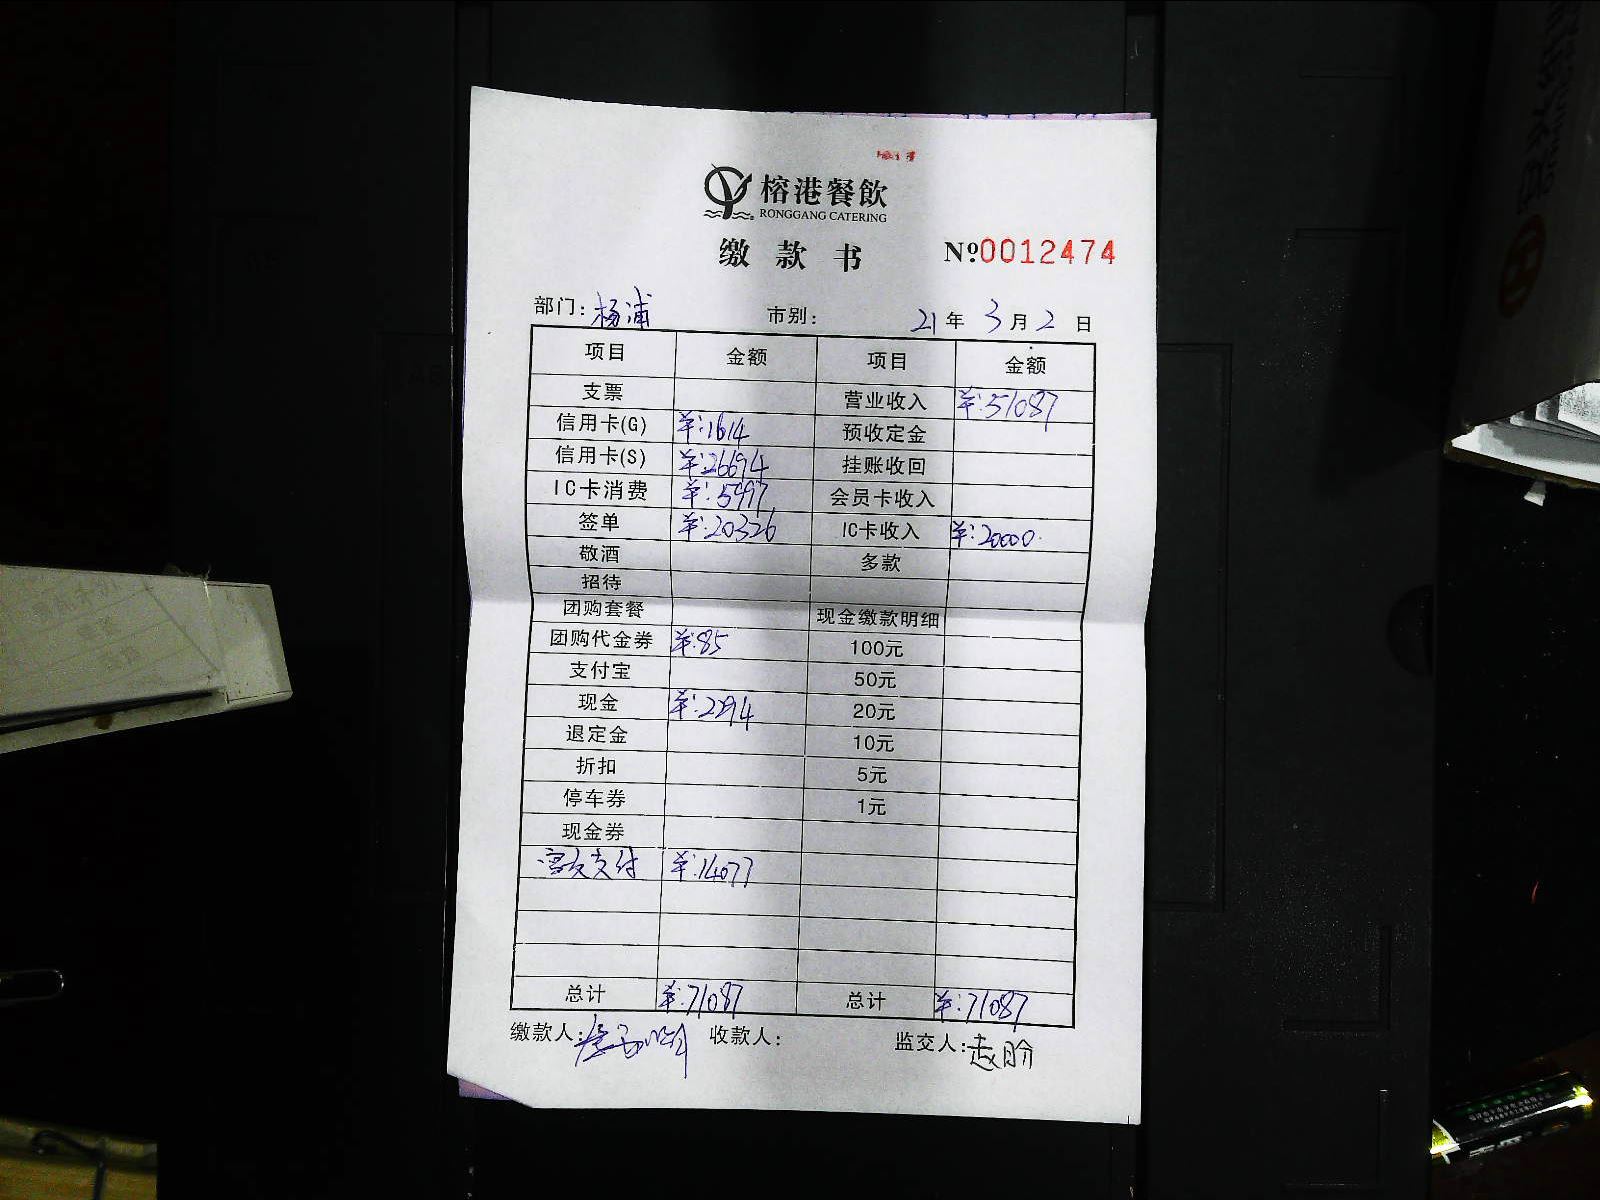 榕港餐飲
RONGGANG CATERING
缴款书 Nº0012474
部门: 杨浦 市别: 21年 3月 2日
项目 金额 项目 金额
支票 营业收入 ¥:51087
信用卡(G) ¥:1614 预收定金
信用卡(S) ¥:26694 挂账收回
IC卡消费 ¥:5497 会员卡收入
签单 ¥:20326 IC卡收入 ¥:20000.
敬酒 多款
招待
团购套餐 现金缴款明细
团购代金券 ¥:85 100元
支付宝 50元
现金 ¥:2794 20元
退定金 10元
折扣 5元
停车券 1元
现金券
富友支付 ¥:14077
总计 ¥:71087 总计 ¥:71087
缴款人: 收款人: 监交人: 赵